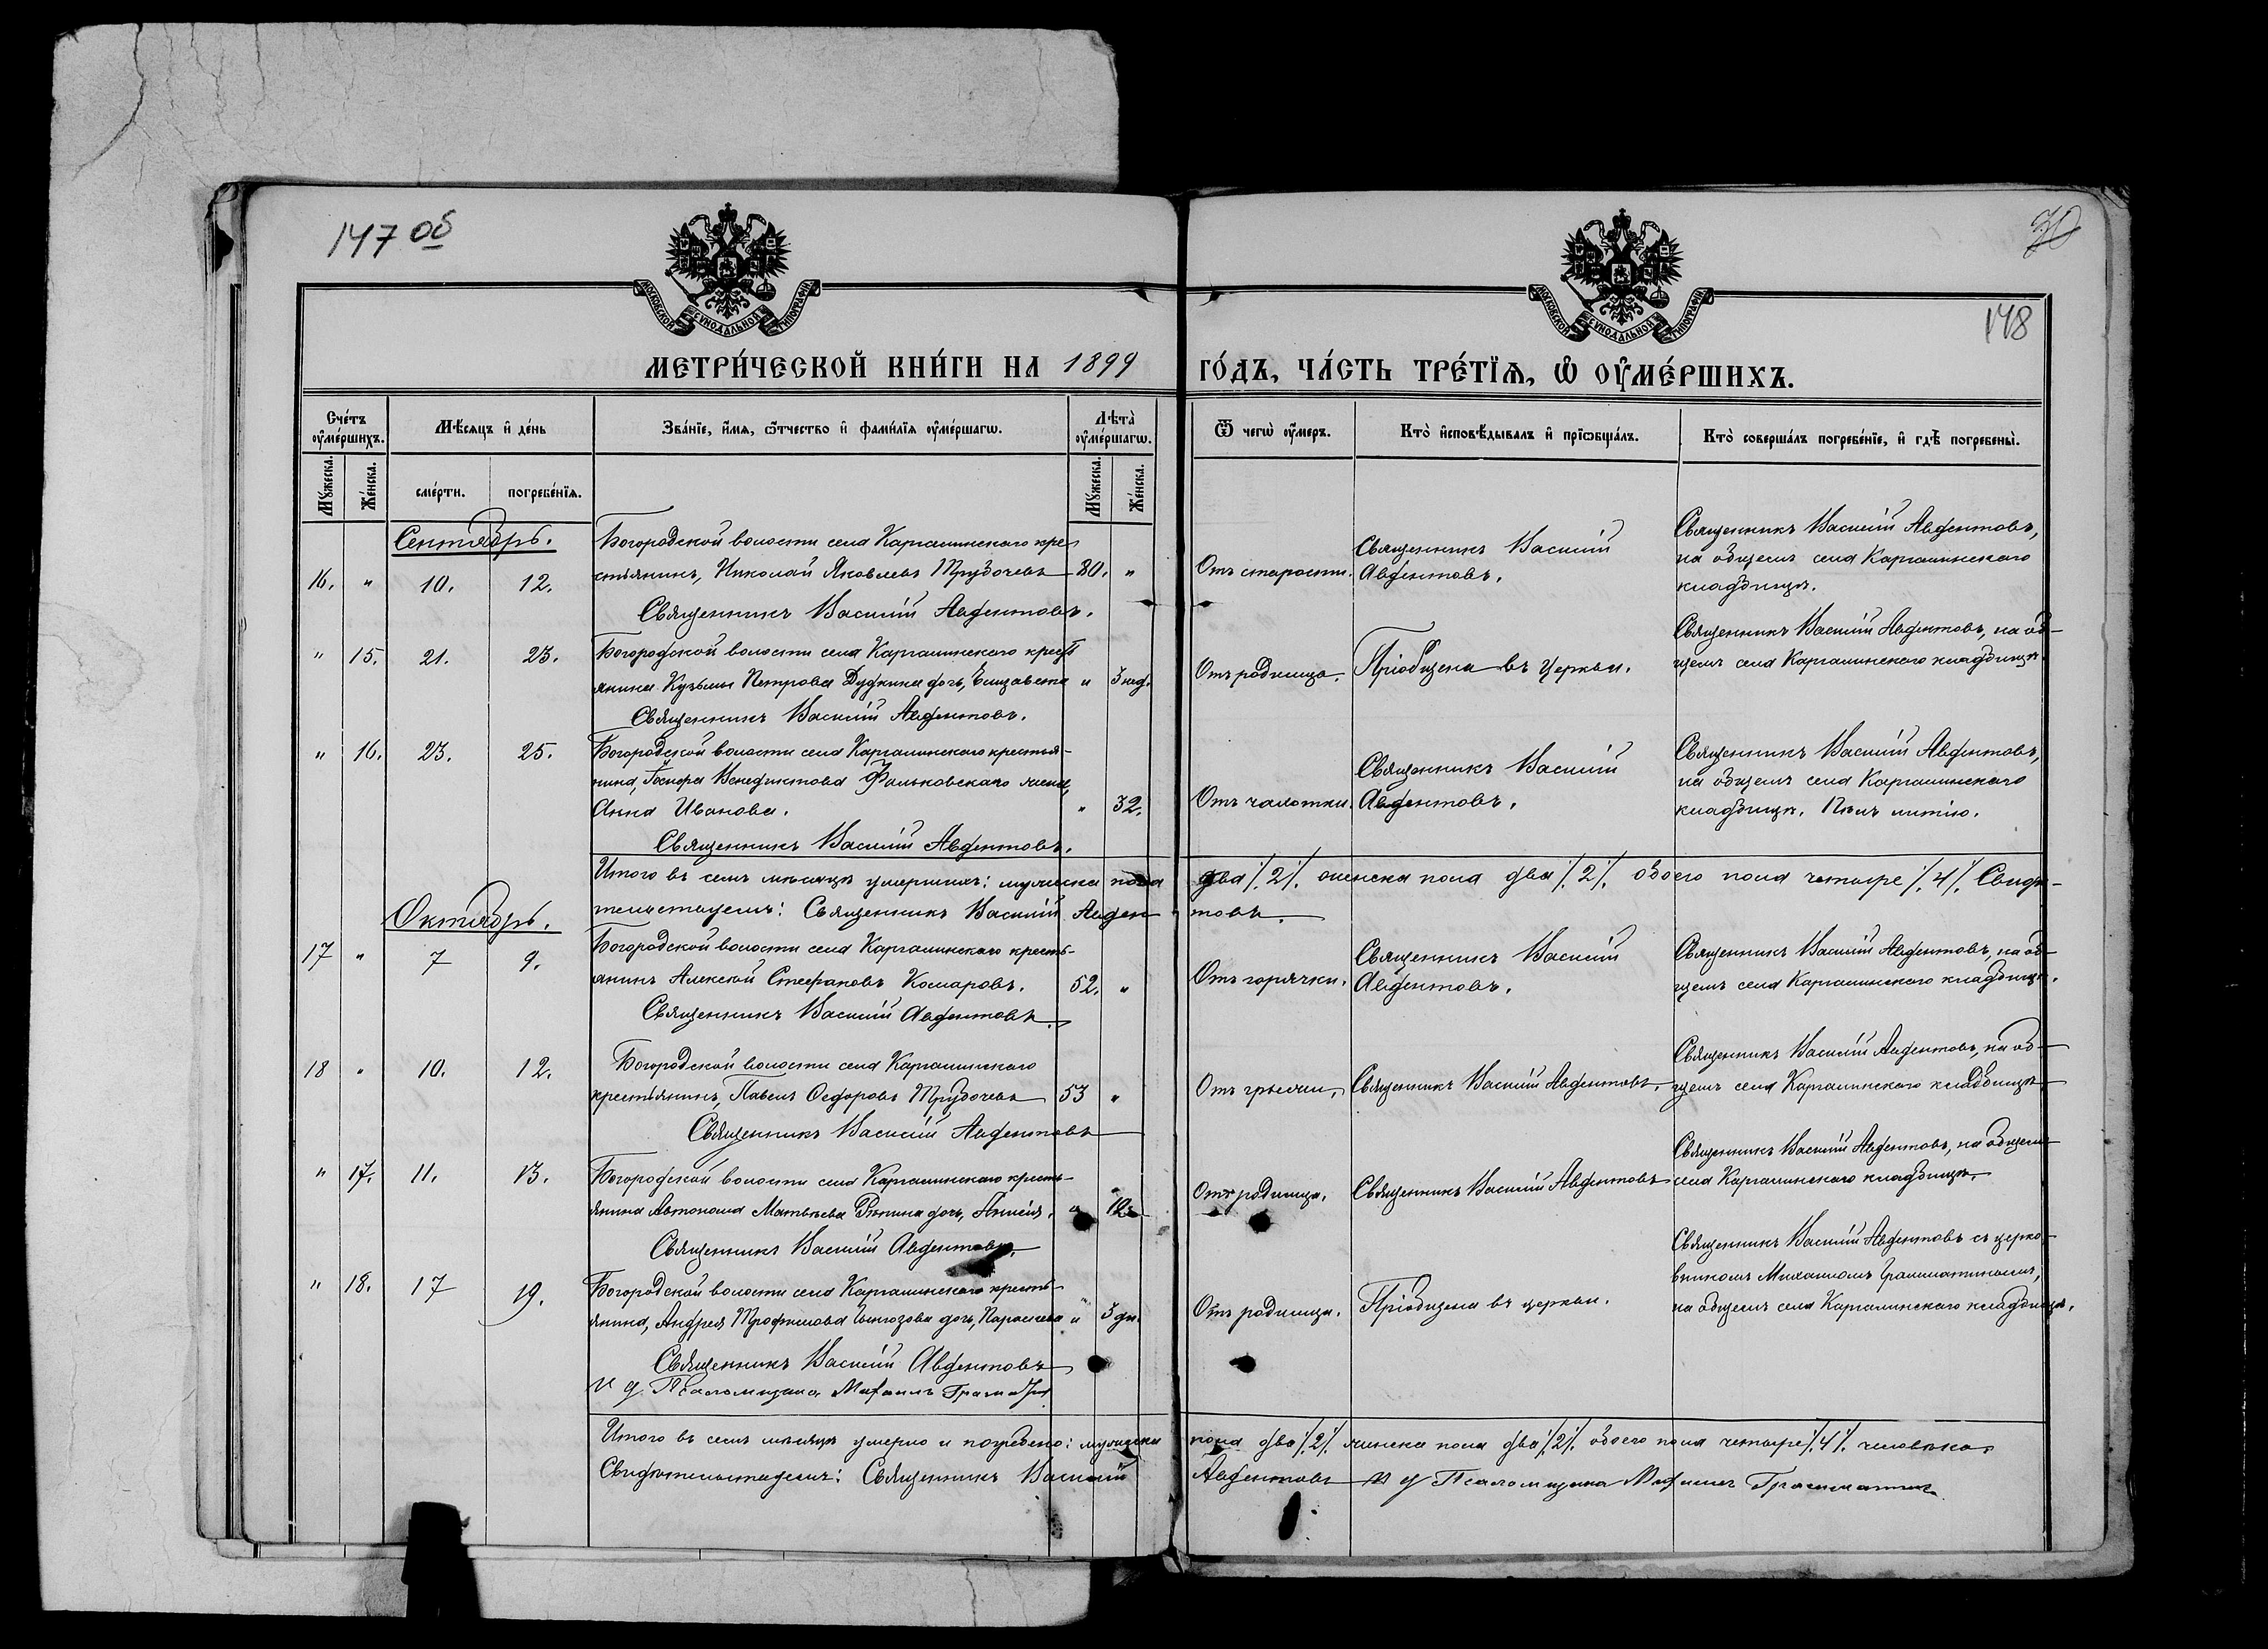 147 об
70
148
МОСКОВСКОЙ СѴНОДАЛЬНОЙ ТИПОГРАФІИ
МОСКОВСКОЙ СѴНОДАЛЬНОЙ ТИПОГРАФІИ
МЕТРИ́ЧЕСКОЙ КНИ́ГИ НА 1899 ГО́ДЪ, ЧА́СТЬ ТРЕ́ТЇѦ, Ѡ҆ ОУ҆МЕ́РШИХЪ.
Сче́тъ оу҆ме́ршихъ.
Мѣ́сяцъ и҆ де́нь
Зва́нїе, и҆́мѧ, ѻ҆́тчество и҆ фами́лїѧ оу҆ме́ршагѡ.
Лѣ́та оу҆ме́ршагѡ.
Ѿ чегѡ̀ оу҆́меръ.
Кто̀ и҆сповѣ́дывалъ и҆ прїѡбща́лъ.
Кто̀ соверша́лъ погребе́нїе, и҆ гдѣ̀ погребены̀.
Мꙋ́жеска.
Же́нска.
сме́рти.
погребе́нїѧ.
Мꙋ́жеска.
Же́нска.
Сентябрь.
16. " 10. 12.
Богородской волости села Каргалинскаго кре-
стьянинъ, Николай Яковлевъ Трубочевъ 80. "
Священникъ Василій Авдентовъ.
Отъ старости.
Священникъ Василій
Авдентовъ.
Священникъ Василій Авдентовъ,
на общемъ села Каргалинскаго
кладбищѣ.
" 15. 21. 23.
Богородской волости села Каргалинскаго крест
янина Кузьмы Петрова Дудкина дочь, Елизавета " 3 нед.
Священникъ Василій Авдентовъ.
Отъ родимца.
Пріобщена въ церкви.
Священникъ Василій Авдентовъ, на об-
щемъ села Каргалинскаго кладбищѣ.
" 16. 23. 25.
Богородской волости села Каргалинскаго крестья-
нина, Іосифа Венедиктова Фальковскаго жена,
Анна Иванова. " 32.
Священникъ Василій Авдентовъ.
Отъ чахотки.
Священникъ Василій
Авдентовъ.
Священникъ Василій Авдентовъ,
на общемъ села Каргалинскаго
кладбищѣ. Пѣлъ литію.
Итого въ семъ мѣсяцѣ умершихъ: мужеска пола два /.2/. женска пола два /.2/. обоего пола четыре /.4/. Свидѣ-
тельствуемъ: Священникъ Василій Авдентовъ.
Октябрь.
17 " 7 9.
Богородской волости села Каргалинскаго кресть-
янинъ Алексѣй Стефановъ Комаровъ. 52. "
Священникъ Василій Авдентовъ.
Отъ горячки.
Священникъ Василій
Авдентовъ.
Священникъ Василій Авдентовъ, на об-
щемъ села Каргалинскаго кладбищѣ.
18 " 10. 12.
Богородской волости села Каргалинскаго
крестьянинъ, Павелъ Ѳедоровъ Трубочевъ 53 "
Священникъ Василій Авдентовъ
Отъ грыжи.
Священникъ Василій Авдентовъ.
Священникъ Василій Авдентовъ, на об-
щемъ села Каргалинскаго кладбищѣ
" 17. 11. 13.
Богородской волости села Каргалинскаго кресть-
янина Автонома Матвѣева Рѣпина дочь, " 12
Священникъ Василій Авдентовъ.
Отъ родимца.
Священникъ Василій Авдентовъ
Священникъ Василій Авдентовъ, на общемъ
села Каргалинскаго кладбищѣ.
" 18. 17 19.
Богородской волости села Каргалинскаго кресть-
янина, Андрея Трофимова дочь, Параскева " 3 дн.
Священникъ Василій Авдентовъ
И д Псаломщика Михаилъ
Отъ родимца.
Пріобщена въ церкви.
Священникъ Василій Авдентовъ съ церко-
вникомъ Михаиломъ Грамматинымъ,
на общемъ села Каргалинскаго кладбищѣ.
Итого въ семъ мѣсяцѣ умерло и погребено: мужеска пола два /.2/. женска пола два /.2/. обоего пола четыре /.4/. человѣка.
Свидѣтельствуемъ: Священникъ Василій Авдентовъ И д Псаломщика Михаилъ Грамматинъ